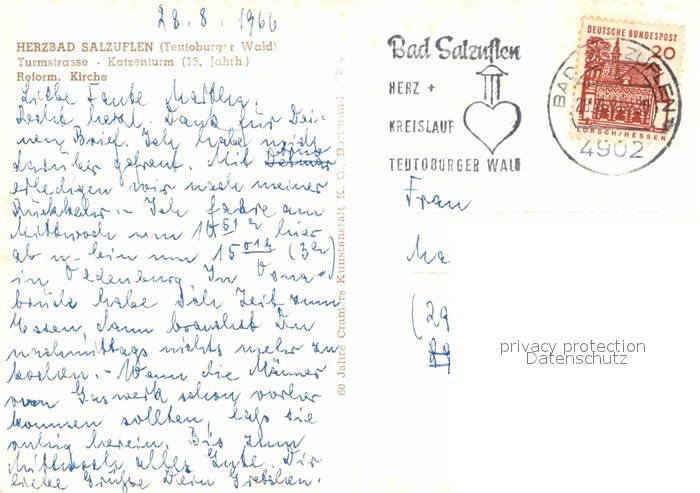 28.8.1966
HERZBAD SALZUFLEN (Teutoburger Wald)
Turmstrasse - Katzenturm (15. Jahrh.)
Reform. Kirche
Liebe Tante Martha.
Recht herzl. Dank für Dei-
nen Brief. Ich habe mich
darüber gefreut. Mit
erledigen wir nach meiner
Rückkehr. - Ich fahre am
Mittwoch um 10 51 h hier
ab u. bin um 15 014 (3h)
in Oldenburg In Osna-
brück habe ich Zeit zum
Essen, dann brauchst Du
nachmittags nichts mehr zu
kochen. - Wenn die Männer
vom Gaswerk schon vorher
kommen sollten, laß sie
ruhig herein. Bis zum
Mittwoch alles Gute. Dir
liebe Grüße Dein Gretchen.
60 Jahre Cramers Kunstanstalt K. G., Dortmund
Bad Salzuflen
HERZ +
KREISLAUF
TEUTOBURGER WALD
BAD SALZUFLEN
4902
DEUTSCHE BUNDESPOST
20
LORSCH/HESSEN
Frau
Ma
(29
privacy protection
Datenschutz